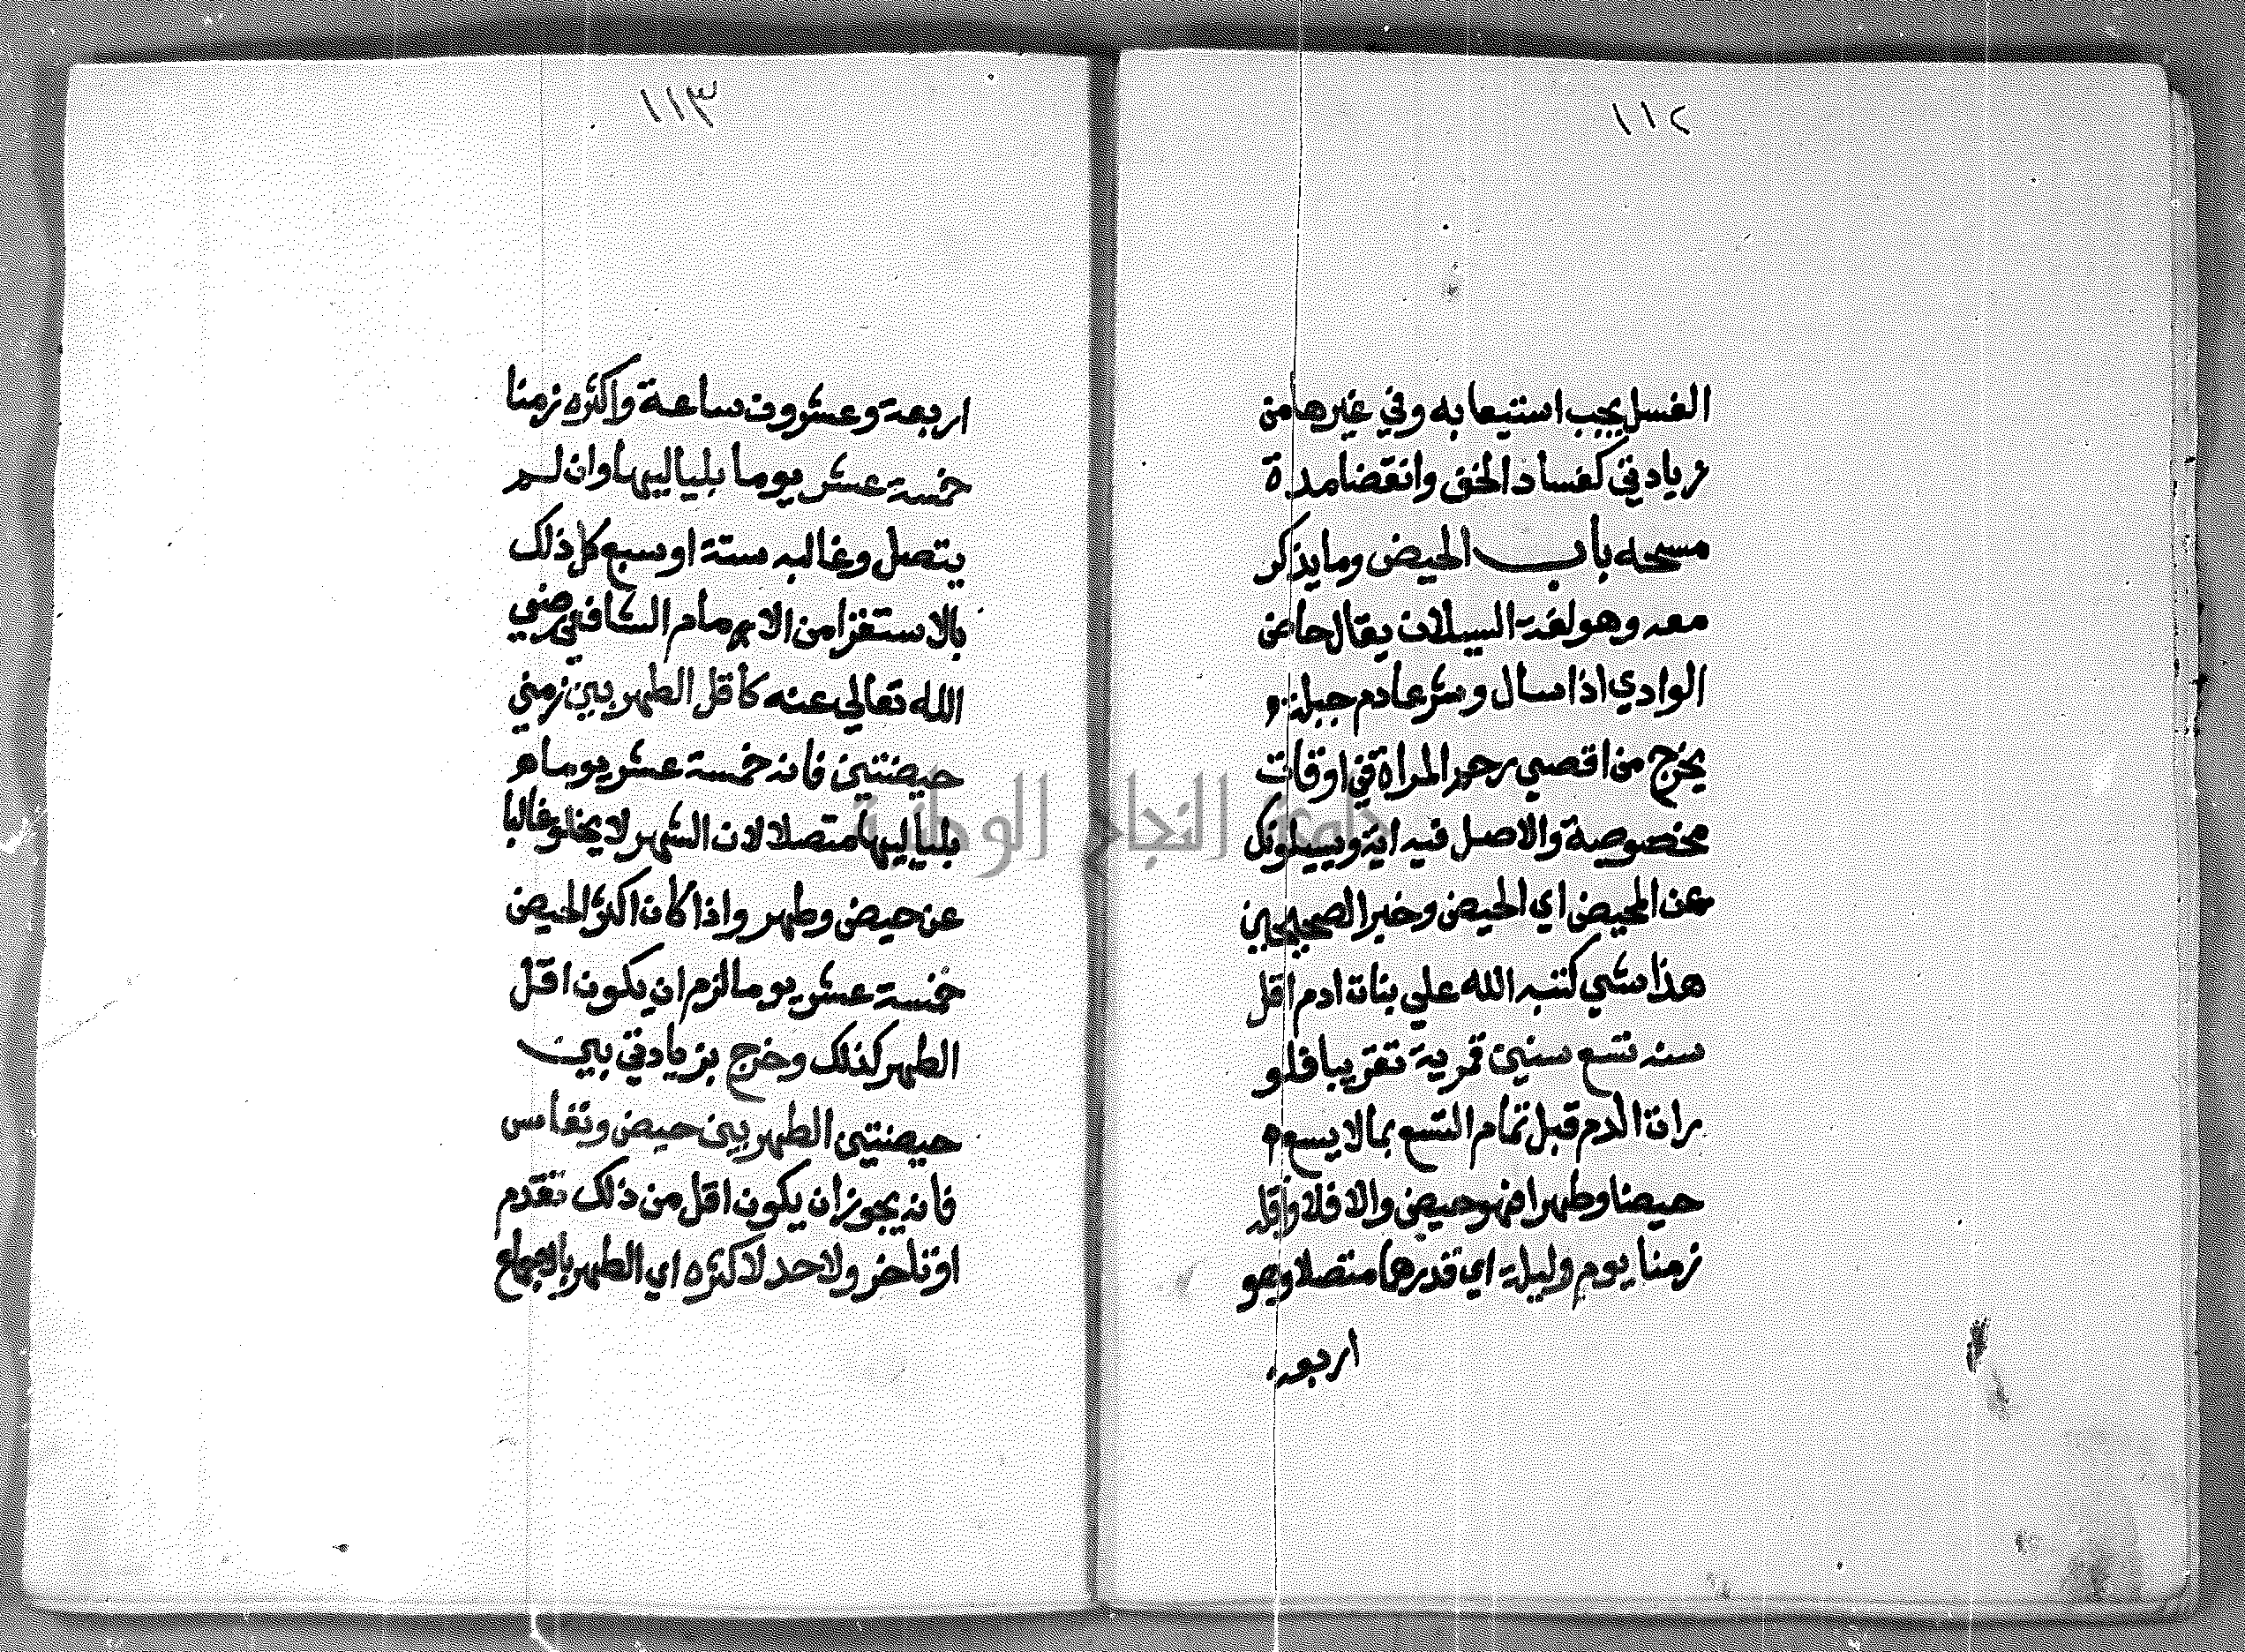 ١١٢
الغسل يجب استيعابه وفي غيرها من
زيادتي كفساد الخف وانقضا مدة
مسحه باب الحيض وما يذكر
معه وهو لغة السيلان يقال حاض
الوادي اذا سال وشرعا دم جبلة
يخرج من اقصي رحم المراة في اوقات
مخصوصة والاصل فيه اية ويسلونك
عن المحيض اي الحيض وخبر الصحيحين
هذا شي كتبه الله علي بنات ادم اقل
سنه تسع سنين قمرية تقريبا فلو
رات الدم قبل تمام التسع بما لا يسع
حيضا وطهرا فهو حيض والا فلا واقله
زمنا يوم وليلة اي قدرهما متصلا وهو
اربعة
١١٣
اربعة وعشرون ساعة واكثره زمنا
خمسة عشر يوما بلياليها وان لم
يتصل وغالبه ستة او سبع كل ذلك
بالاستقرا من الامام الشافعي رضي
الله تعالي عنه كاقل الطهر بين زمني
حيضتين فانه خمسة عشر يوما
بلياليها متصلا لان الشهر لا يخلو غالبا
عن حيض وطهر واذا كان اكثر الحيض
خمسة عشر يوما لزم ان يكون اقل
الطهر كذلك وخرج بزيادتي بين
حيضتي الطهر بين حيض ونفاس
فانه يجوز ان يكون اقل من ذلك تقدم
او تاخر ولا حد لاكثره اي الطهر بالاجماع
جامعة النجاح الوطنية